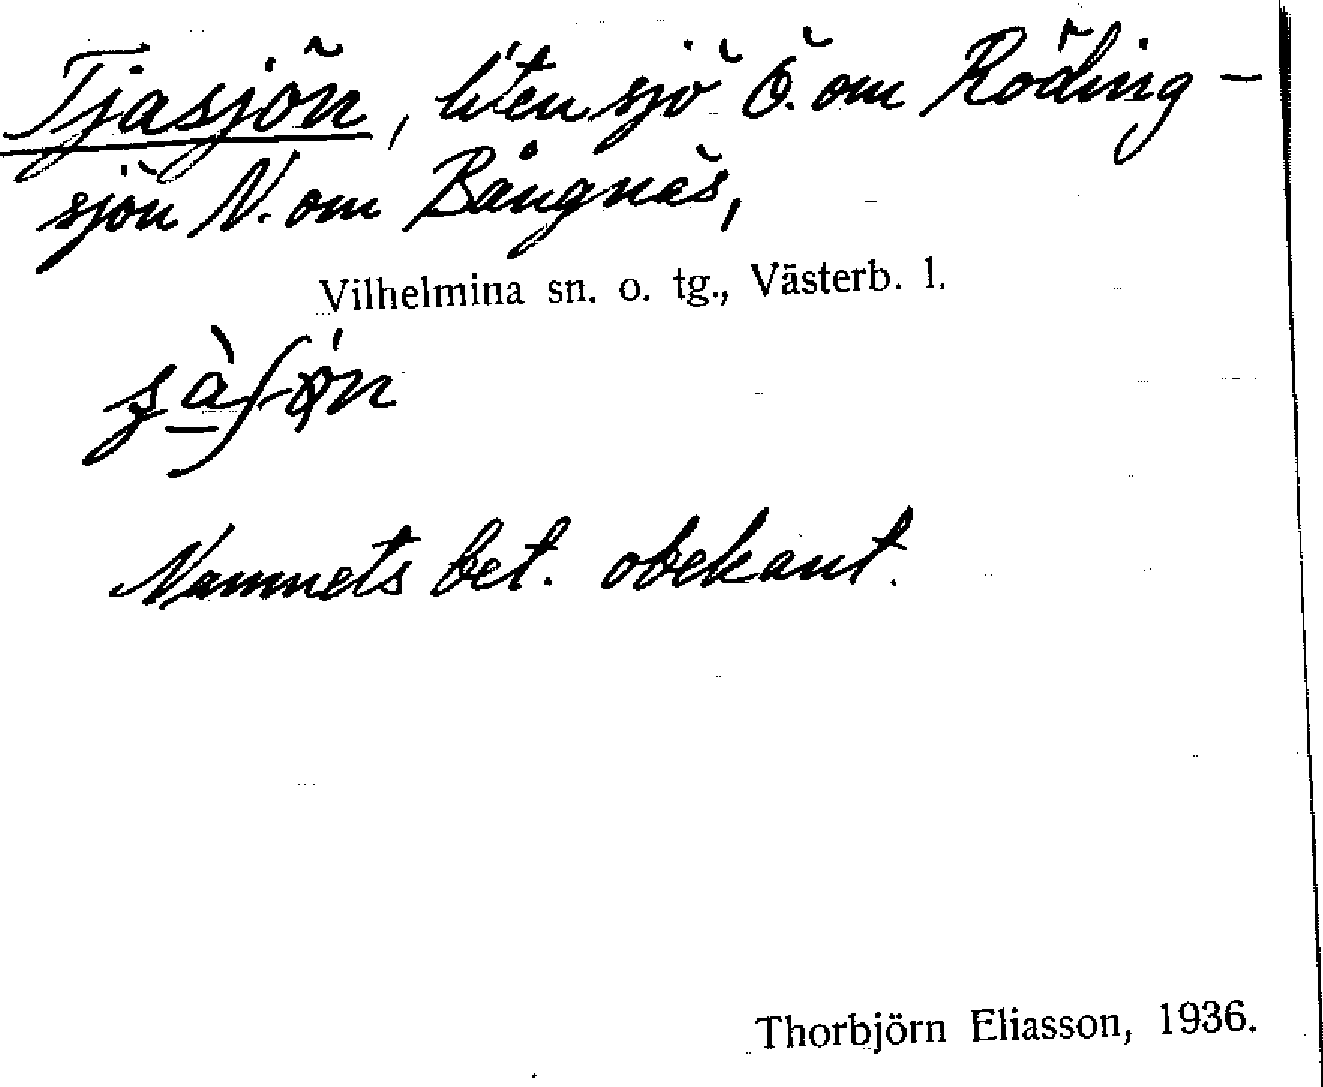 Tjasjön, liten sjö Ö. om Röding-
sjön N. om Bångnäs,
Vilhelmina sn. o. tg., Västerb. l.
Namnets bet. obekant.
Thorbjörn Eliasson, 1936.